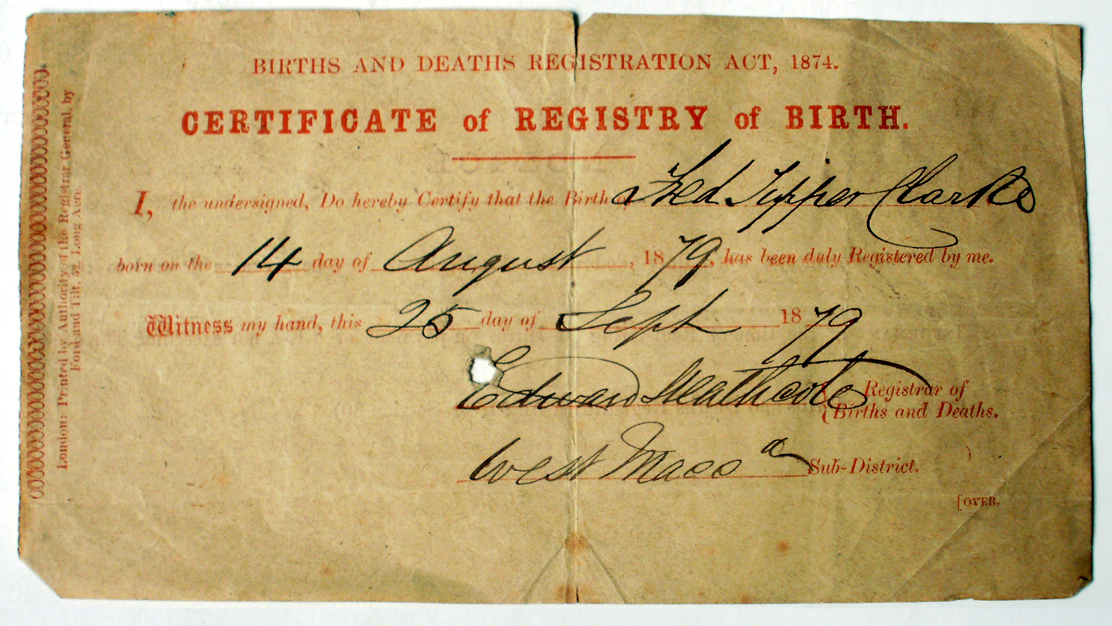 BIRTHS AND DEATHS REGISTRATION ACT, 1874.
CERTIFICATE of REGISTRY of BIRTH.
I, the undersigned, Do hereby Certify that the Birth of Fred Tipper Clarke
born on the 14 day of August, 1879, has been duly Registered by me.
Witness my hand, this 25 day of Sept 1879
Edward Heathcote Registrar of
Births and Deaths.
West Macc a Sub-District.
[OVER.
London: Printed by Authority of the Registrar General, by
Ford and Tilt, 52, Long Acre.